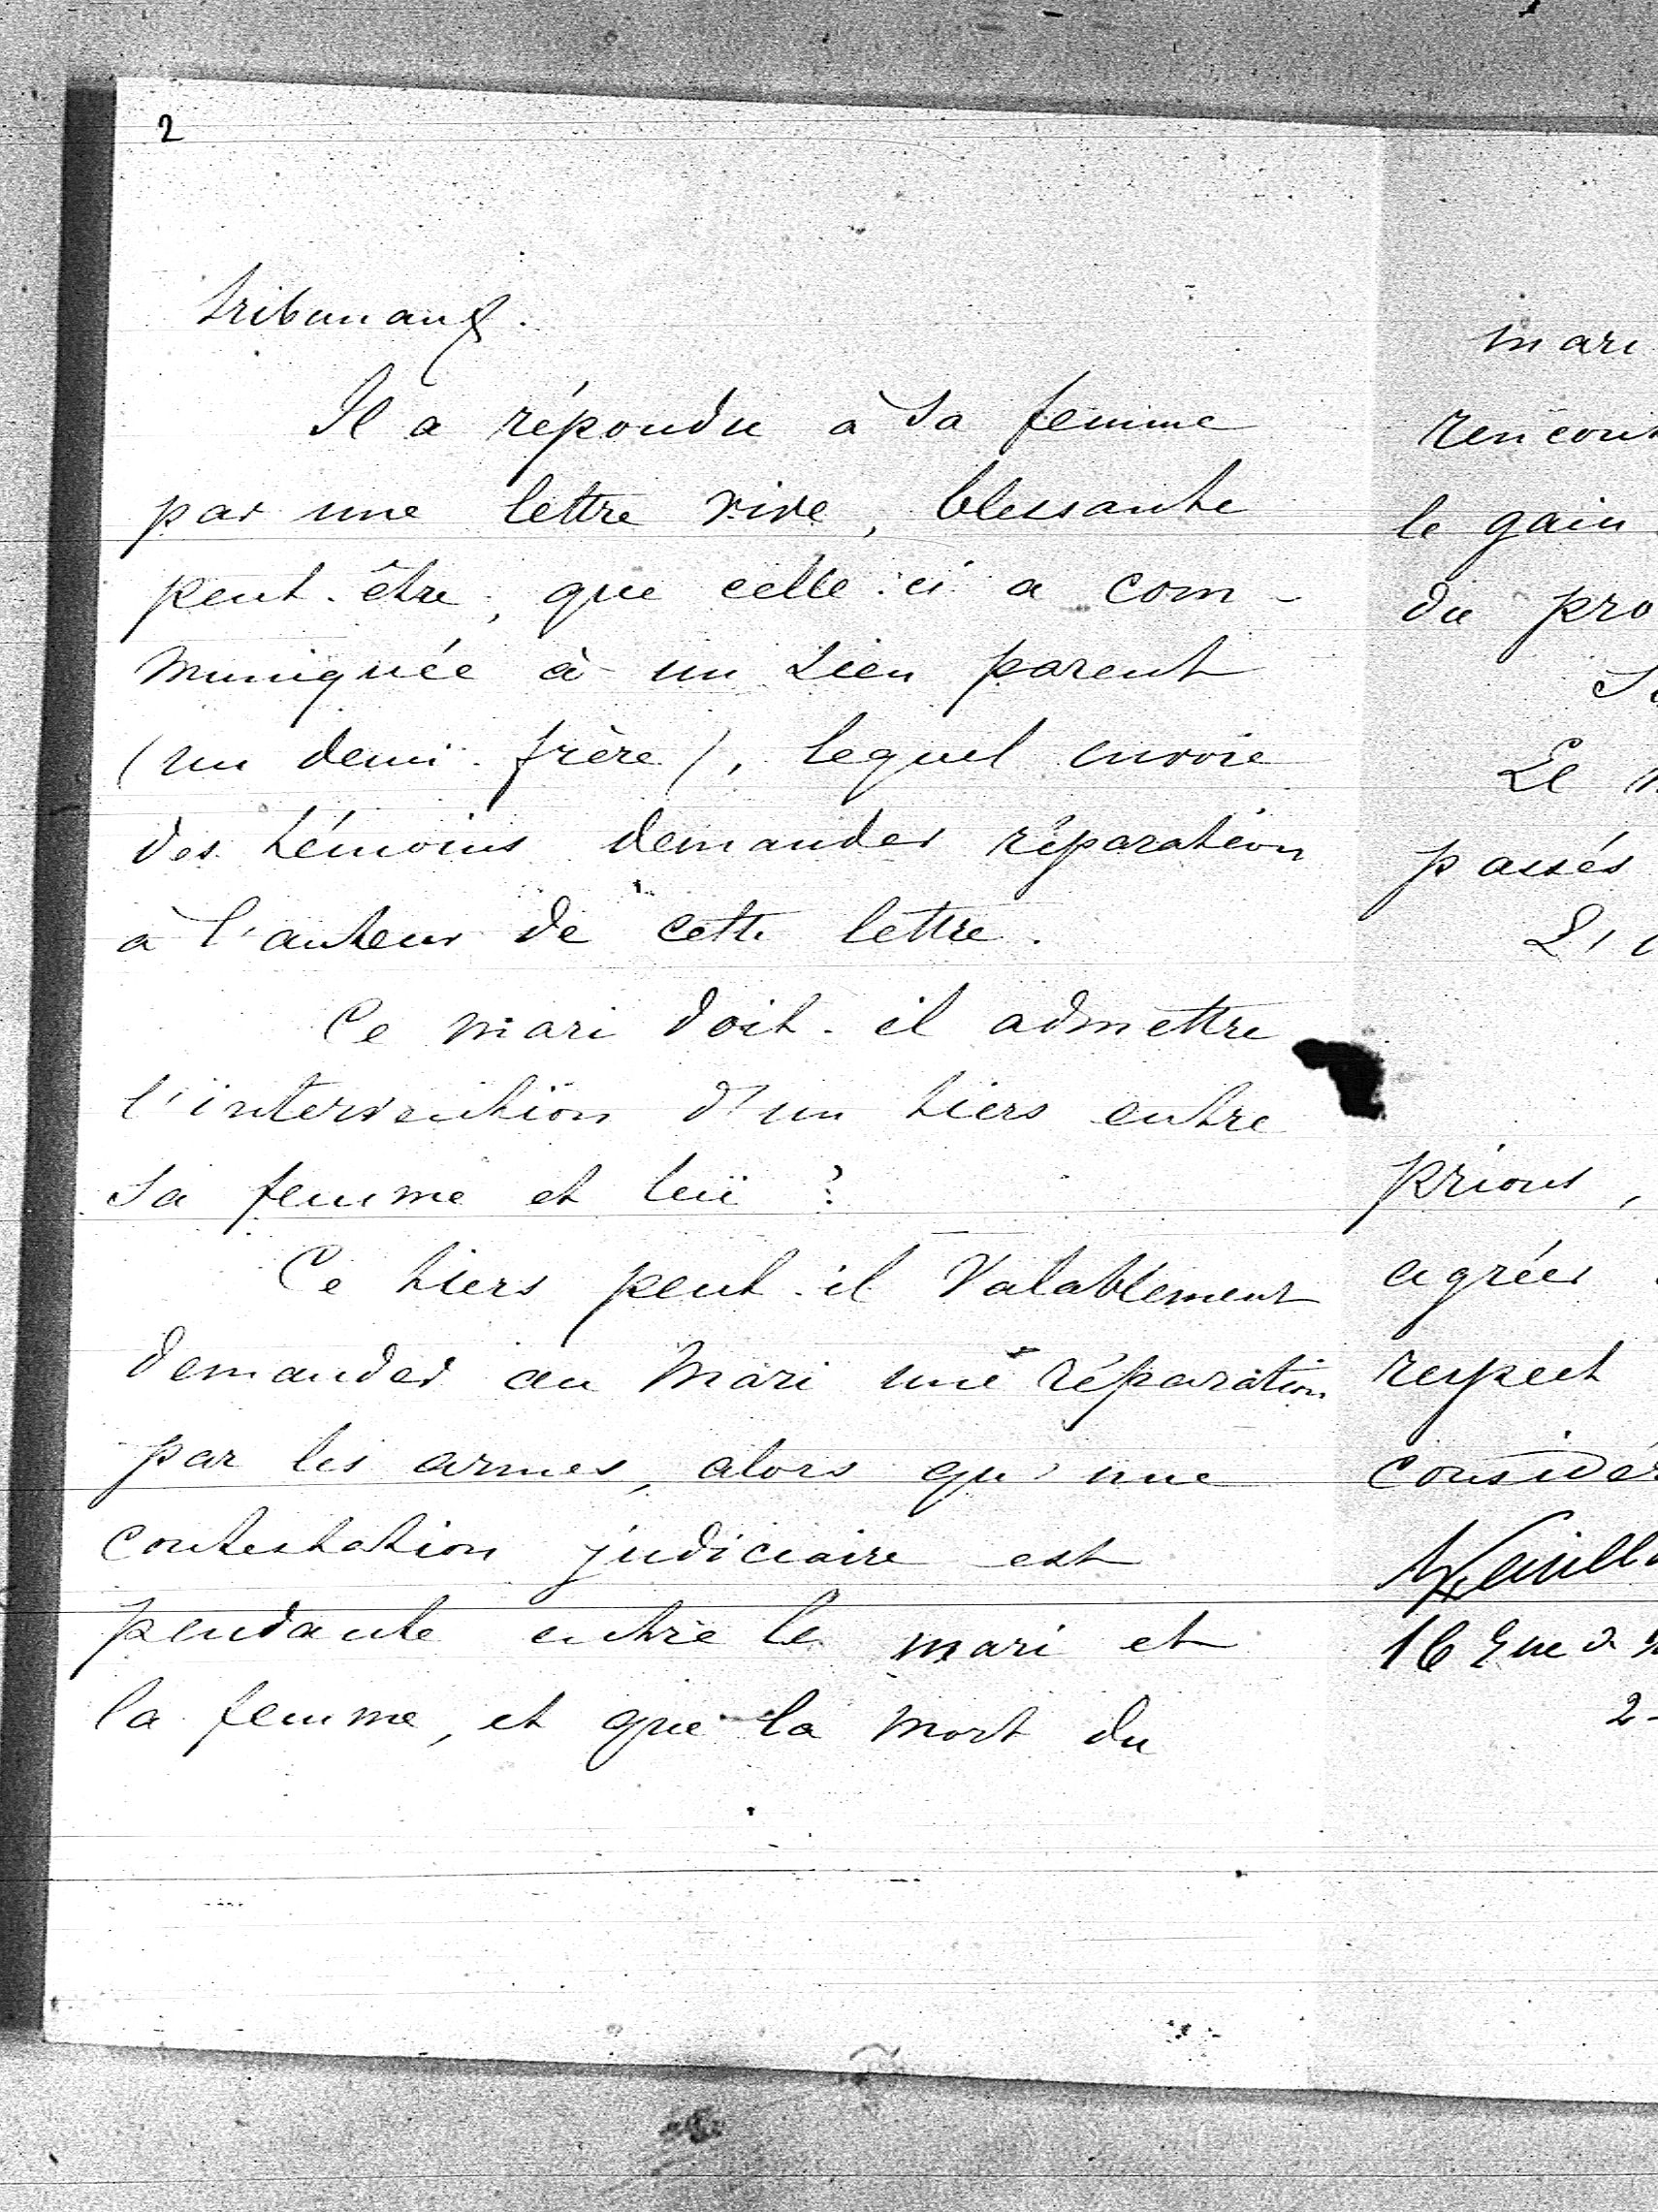 2
tribunaux.
Il a répondu à sa femme
par une lettre vive, blessante
peut-être, que celle-ci a com-
muniquée à un sien parent
(un demi-frère), lequel envoie
des témoins demander réparation
à l'auteur de cette lettre.
Ce mari doit-il admettre
l'intervention d'un tiers entre
sa femme et lui ?
Ce tiers peut-il valablement
demander au mari une réparation
par les armes, alors qu'une
contestation judiciaire est
pendante entre le mari et
la femme, et que la mort du
mari
rencont
le gain
du pro
Le
passés
L'
prions,
agréer
respect
considér
16 rue de
2-